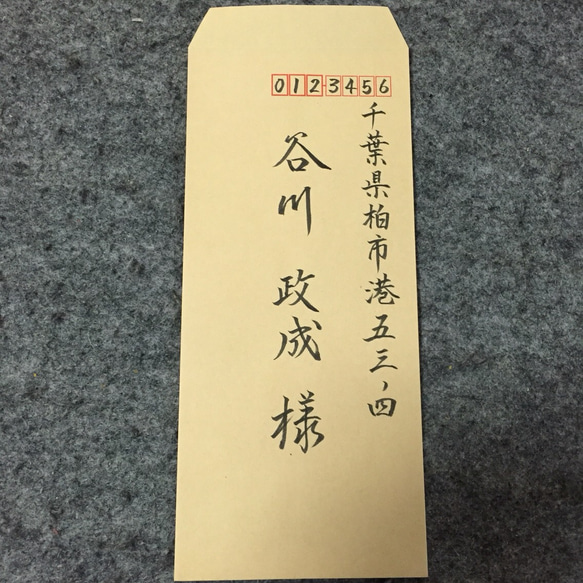 0123456
千葉県柏市港五三、四
谷川 政成 様